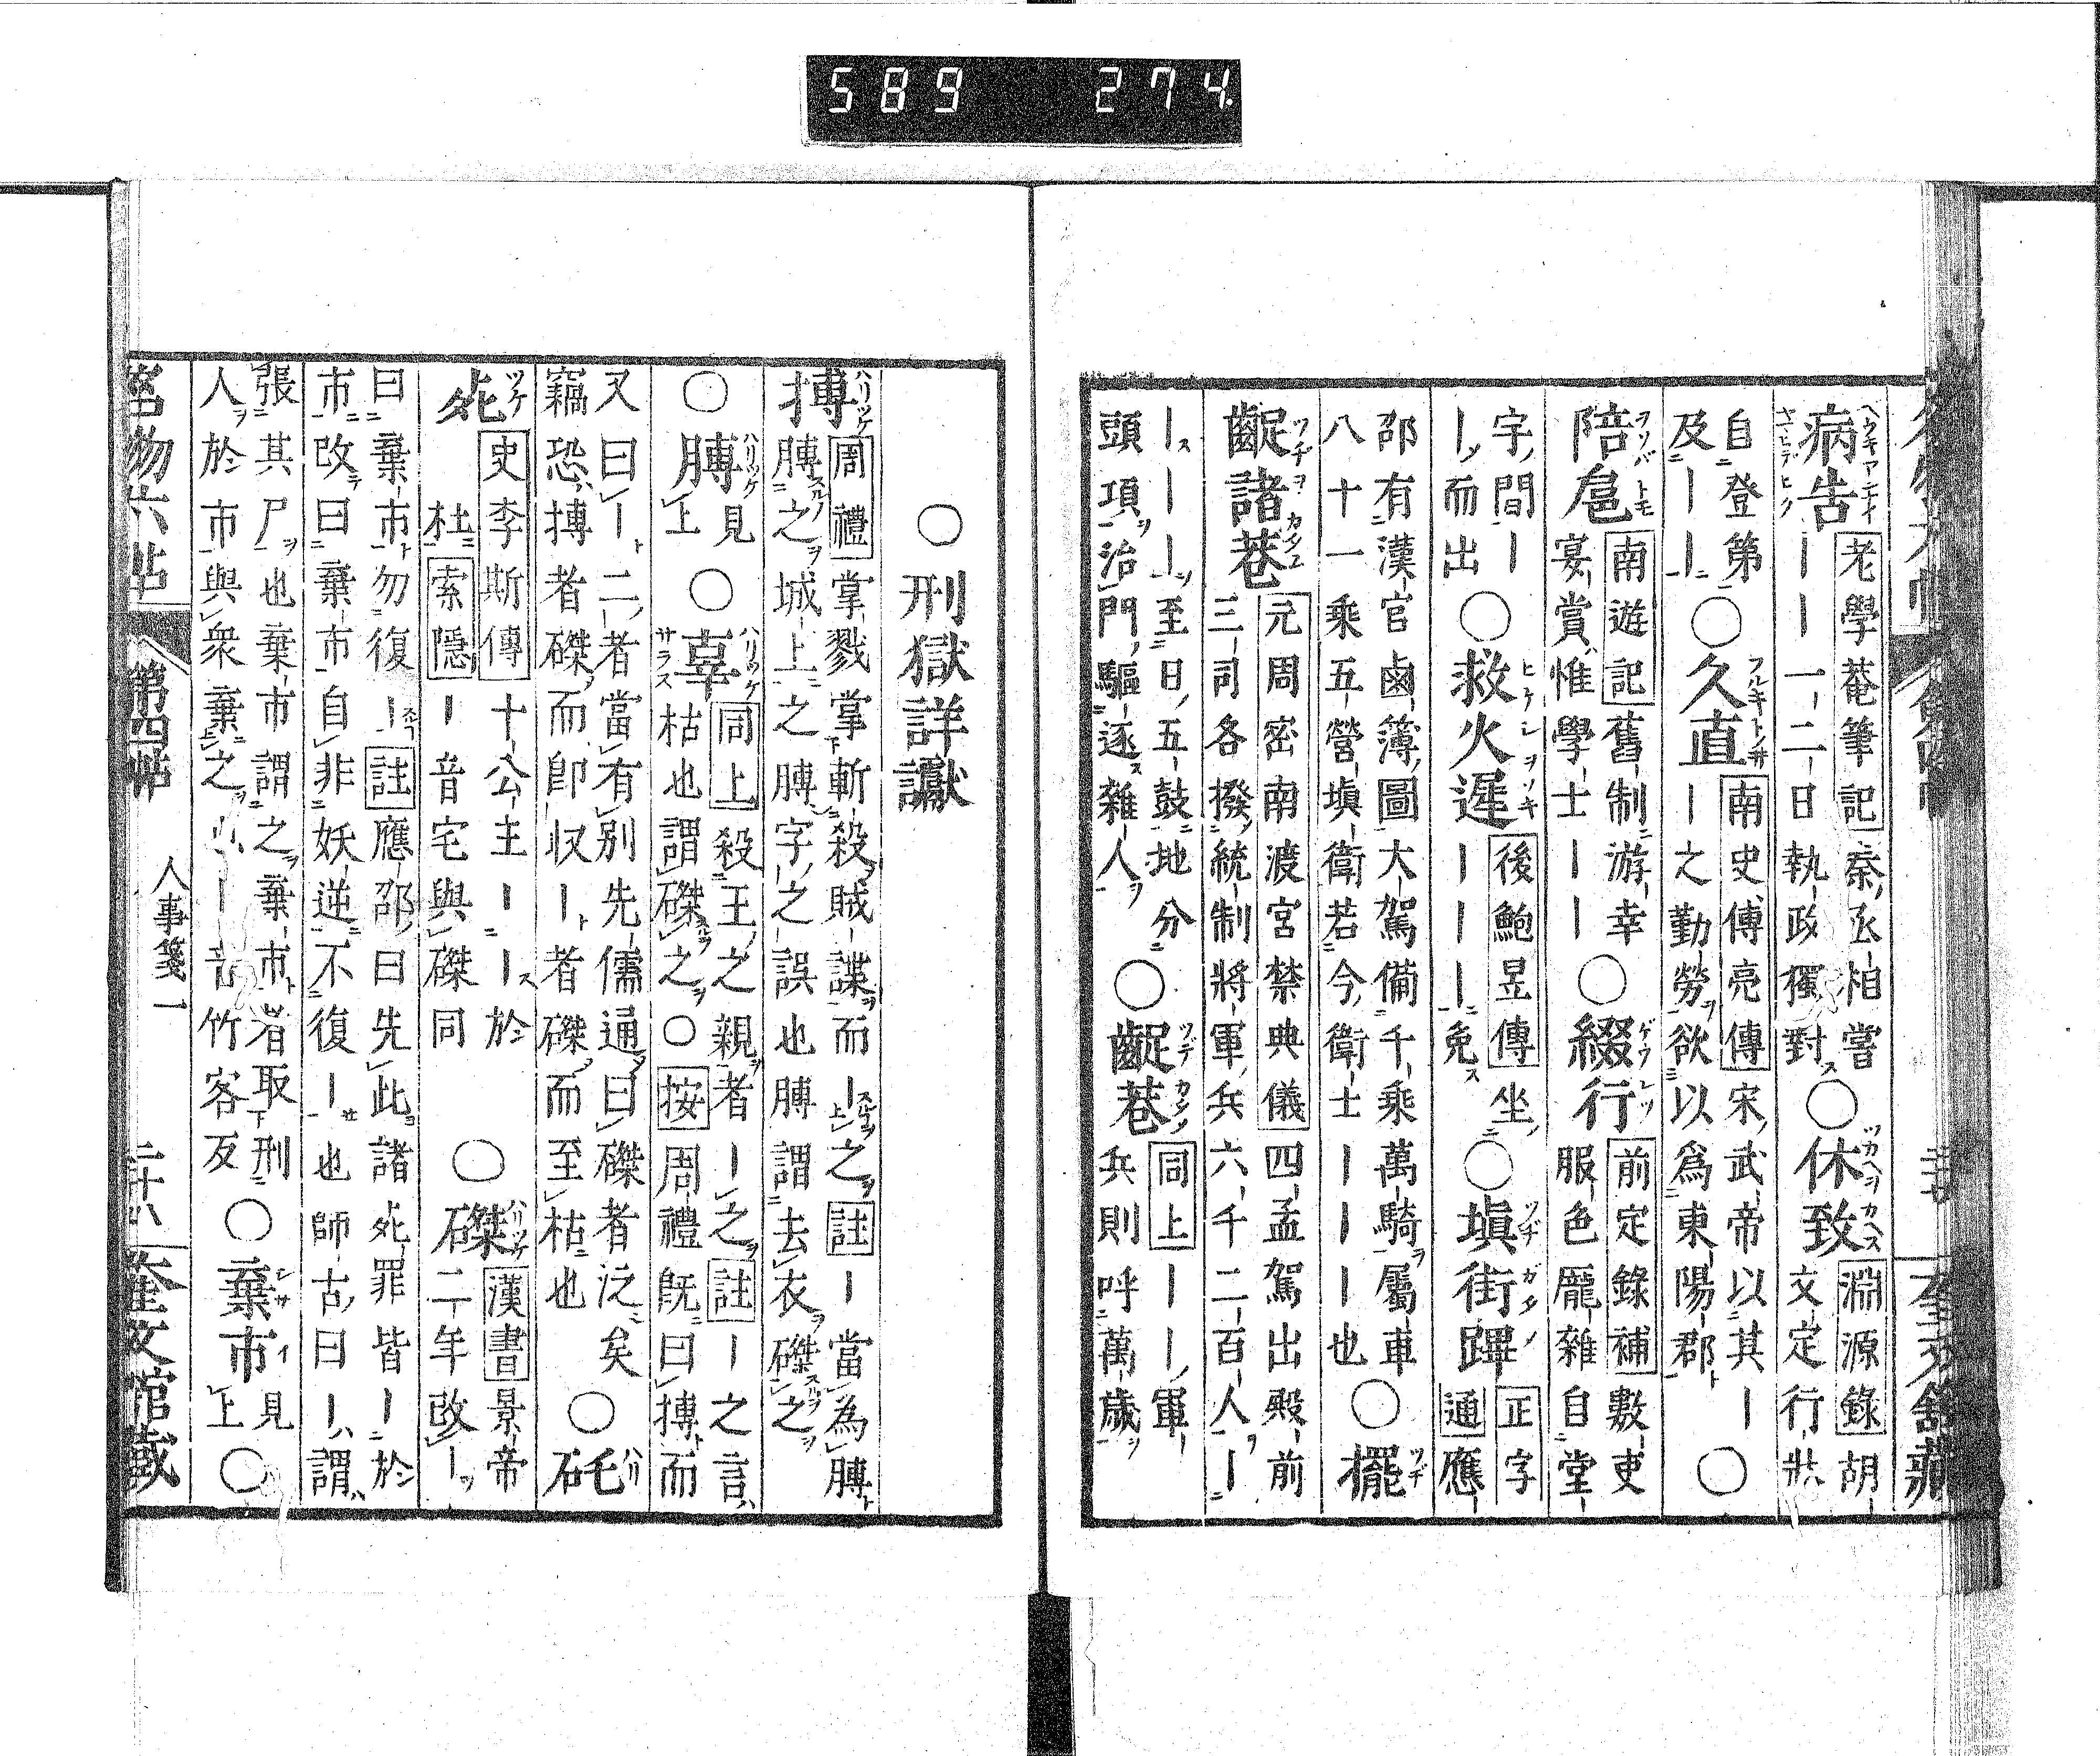 589 274
病告 老學菴筆記 秦丞相嘗
ーー一二日執政獨對 ○休致 淵源錄 胡文定行狀
自登第
及ーー ○久直 南史傅亮傳 宋武帝以其ー
ー之勤勞欲以爲東陽郡 ○
陪扈 南遊記 舊制游幸
宴賞惟學士ーー ○綴行 前定錄補 數吏
服色龐雜自堂
字間ー
ー而出 ○救火遲 後鮑昱傳 坐
ーーー免 ○塡街蹕 正字通 應
邵有漢官鹵簿圖大駕備千乘萬騎屬車
八十一乘五營塡衛若今衛士ーーー也 ○擺
齪諸巷 元周密南渡宮禁典儀 四孟駕出殿前
三司各撥統制將軍兵六千二百人ー
ーーー至日五鼓地分
頭項治門驅逐雜人 ○齪巷 同上 ーー軍
兵則呼萬歲
○刑獄詳讞
搏 周禮 掌戮掌斬殺賊諜而ー之 註 ー當為膊
膊之城上之膊字之誤也膊謂去衣磔之
○膊 見上 ○辜 同上 殺王之親者ー之 註 ー之言
枯也謂磔之 ○ 按 周禮旣曰搏而
又曰ー二者當有別先儒通曰磔者泛矣
竊恐搏者磔而卽收ー者磔而至枯也 ○矺
死 史李斯傳 十公主ーー於
杜 索隱 ー音宅與磔同 ○磔 漢書 景帝
二年改ー
曰棄市勿復ー 註 應邵曰先此諸死罪皆ー於
市改曰棄市自非妖逆不復ー也師古曰ー謂
張其尸也棄市謂之棄市者取刑
人於市與衆棄之也ー音竹客反 ○棄市 見上 ○
名物六帖 第四帖 人事箋一 二十八 奎文館藏